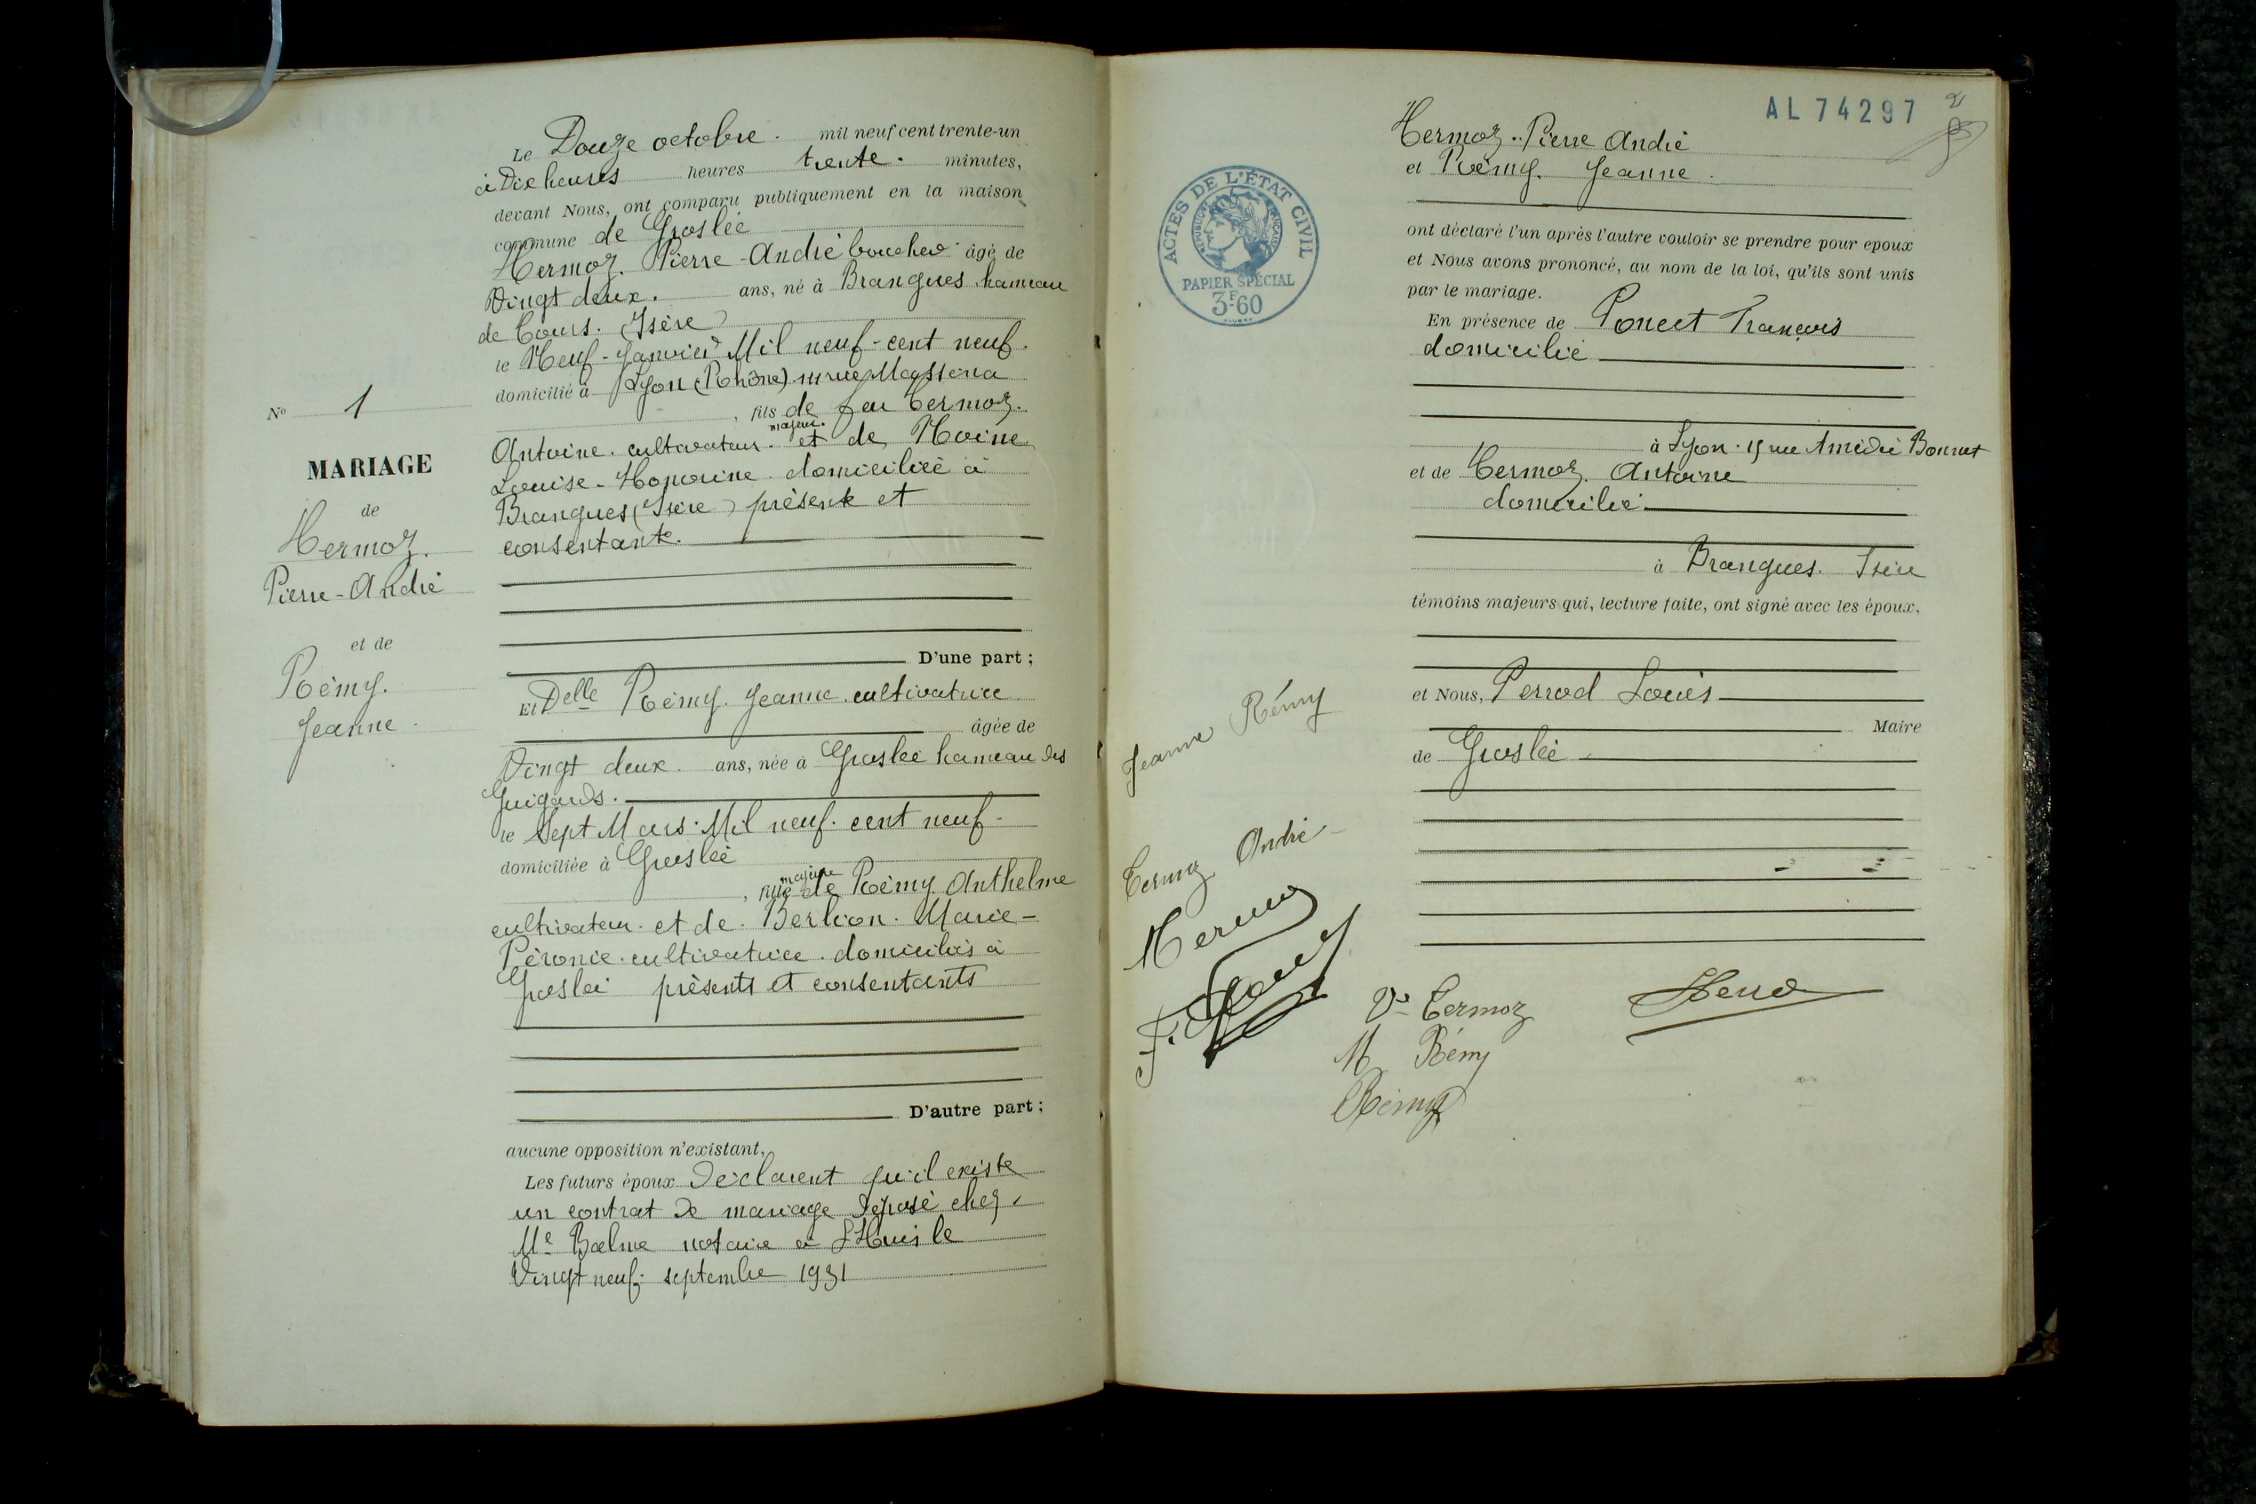 Le Douze octobre. mil neuf cent trente-un
à Dix heures heures trente. minutes,
devant Nous, ont comparu publiquement en la maison
commune de Groslée
Hermoz. Pierre-André boucher âgé de
Vingt deux. ans, né à Brangues hameau
de Cours. (Isère)
le Neuf-Janvier Mil neuf-cent neuf.
domicilié à Lyon (Rhône) rue Massena
, fils de feu Cermoz.
majeur.
Antoine. cultivateur. et de
Louise-Honorine domiciliée à
Brangues (Isère) présente et
consentante.
D'une part;
Nº 1
MARIAGE
de
Hermoz.
Pierre-André
et de
Rémy.
Jeanne.
Et Delle Rémy. Jeanne. cultivatrice
âgée de
Vingt deux. ans, née à Groslée hameau des
Guigards.
le Sept Mars. Mil neuf. cent neuf-
domiciliée à Groslée
majeure
, fille de Rémy Anthelme
cultivateur. et de. Berlion. Marie-
Péronie. cultivatrice. domiciliés à
Groslée présents et consentants
D'autre part;
aucune opposition n'existant,
Les futurs époux Déclarent qu'il existe
un contrat de mariage déposé chez
Me Bœlme notaire à L'Huis le
Vingt neuf. septembre 1931
AL 74297
2
Hermoz.. Pierre André
et Rémy. Jeanne.
ACTES DE L'ÉTAT CIVIL
RÉPUBLIQUE FRANÇAISE
PAPIER SPÉCIAL
3F60
ont déclaré l'un après l'autre vouloir se prendre pour époux
et Nous avons prononcé, au nom de la loi, qu'ils sont unis
par le mariage.
En présence de Poncet François
domicilié
à Lyon. 15 rue Amédée Bonnet
et de Cermoz. Antoine
domicilié
à Brangues. Isère
témoins majeurs qui, lecture faite, ont signé avec les époux,
et Nous, Perrod Louis
Maire
de Groslée
Jeanne Rémy
Cermoz André
Vve Cermoz
M Rémy
Rémy